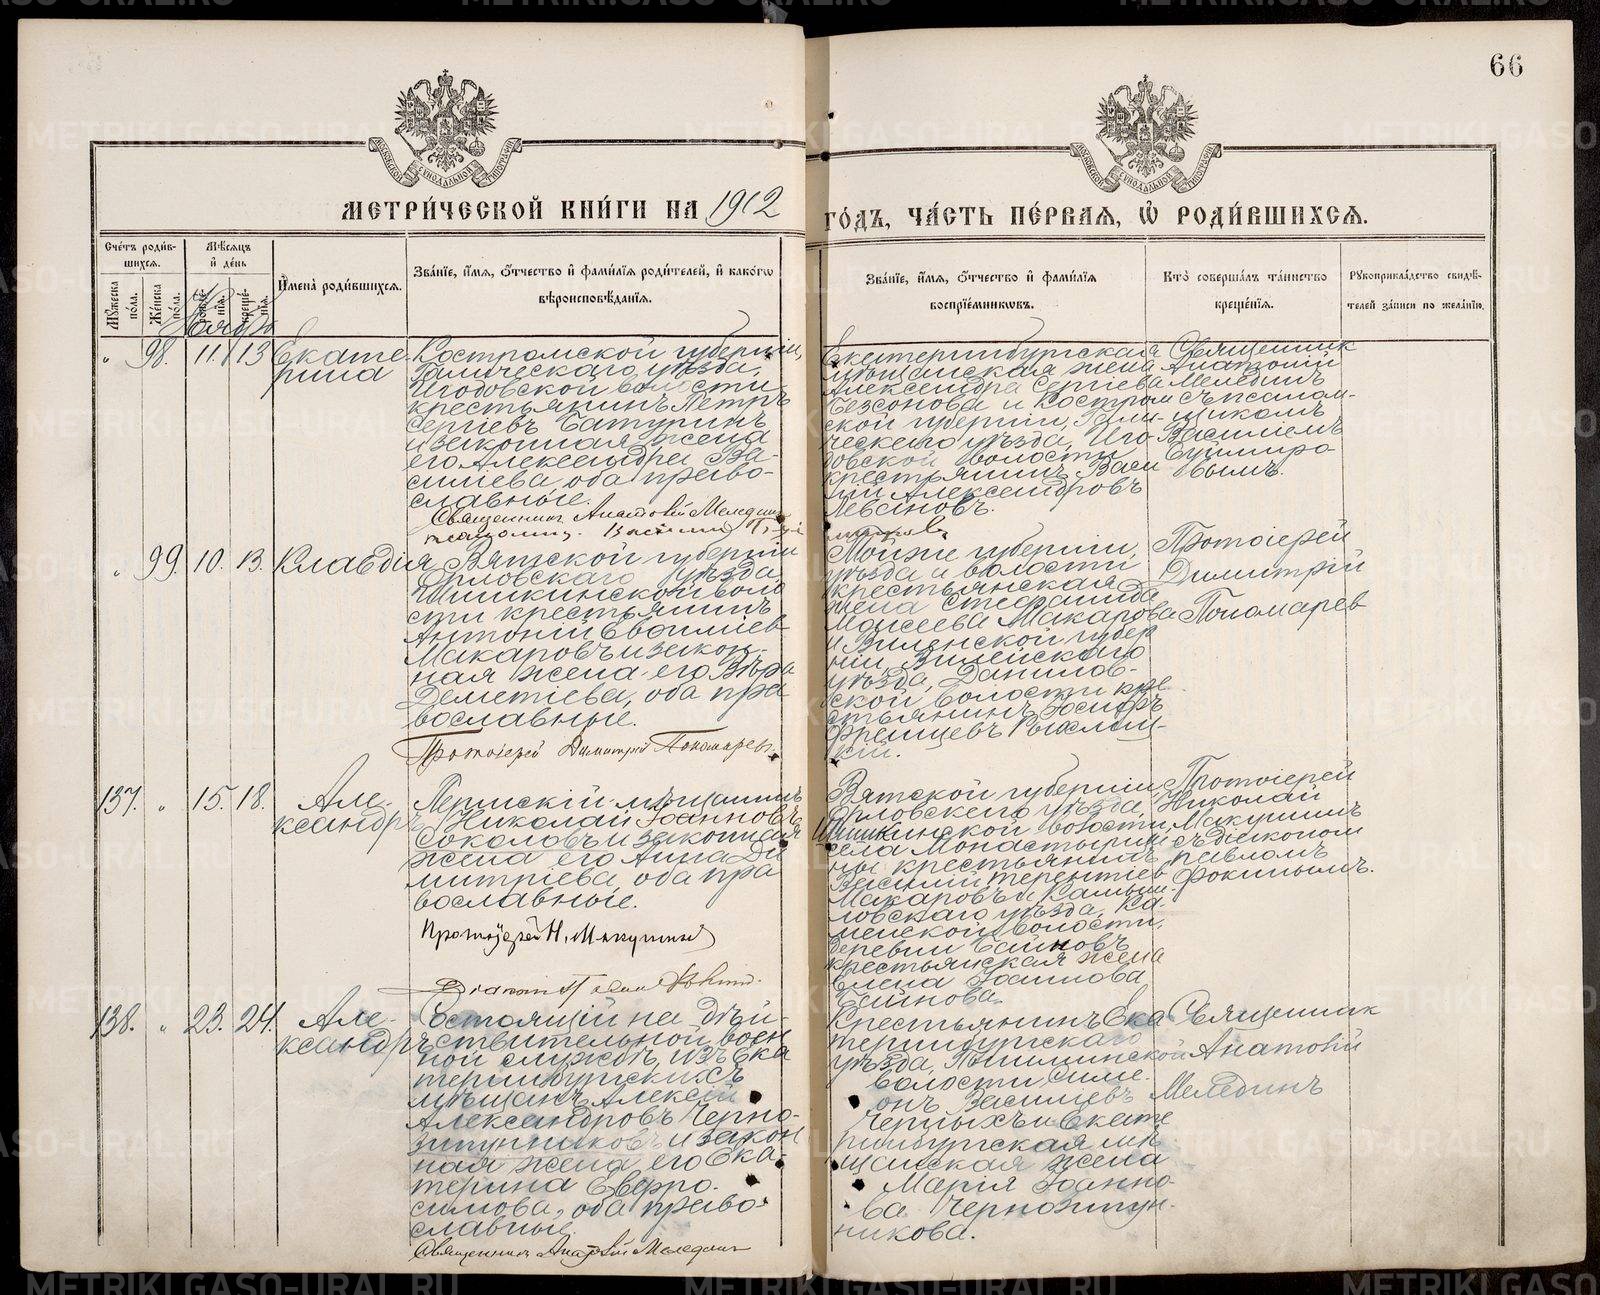 66
МЕТРИ́ЧЕСКОЙ КНИ́ГИ НА 1912 ГО́ДЪ, ЧА́СТЬ ПЕ́РВАЯ, Ѡ҆ РОДИ́ВШИХСЯ.
Сче́тъ роди́в-
шихся.
Мꙋ́жеска по́ла.
Же́нска по́ла.
Мѣ́сяцъ
и҆ де́нь
рожде́нїя.
креще́нїя.
И҆мена̀ роди́вшихся.
Зва́нїе, и҆́мя, ѻ҆́тчество и҆ фами́лїя роди́телей, и҆ како́гѡ
вѣроисповѣ́данїя.
Зва́нїе, и҆́мя, ѻ҆́тчество и҆ фами́лїя
воспрїе́мниковъ.
Кто̀ соверша́лъ та́инство
креще́нїя.
Рꙋкоприкла́дство свидѣ́-
телей за́писи по жела́нїю.
Ноябрь
" 98. 11. 13
Екате-
рина
Костромской губерніи,
Галическаго уѣзда,
Игодовской волости
крестьянинъ Петръ
Сергіевъ Батуринъ
и законная жена
его Александра Ва-
силиева, оба право-
славные.
Священникъ Анатолій Меледин
псаломщ. Василий
Екатеринбургская
мѣщанская жена
Александра Сергіева
Безсонова и Костром
ской губерніи, Гали-
ческаго уѣзда, Иго
довской волости
крестьянинъ Васи
лій Александровъ
Левановъ.
Священник
Анатолій
Мелединъ
съ псалом-
щикомъ
Василіемъ
Буймиро
вымъ.
" 99. 10. 13.
Клавдія
Вятской губерніи
Орловскаго уѣзда,
Шишкинской воло
сти крестьянинъ
Антоній Евфиміев
Макаровъ и закон-
ная жена его Вѣра
Деметіева, оба пра
вославные.
Протоіерей Димитрій Пономаревъ.
Той же губерніи,
уѣзда и волости
крестьянская
жена Стефанида
Моисеева Макарова
и Виленской губер
ніи, Вилейскаго
уѣзда, Данилов-
ской волости кре
стьянинъ Іосифъ
Францевъ
кій.
Протоіерей
Димитрій
Пономарев
137. " 15. 18.
Але-
ксандръ
Пермскій мѣщанинъ
Николай Іоанновъ
Соколовъ и законная
жена его Анна Ди
митріева, оба пра
вославные.
Протоіерей Н. Макушинъ
Диаконъ Павел Фокин.
Вятской губерніи
Орловскаго уѣзда,
Шишкинской волости,
села Монастырщи
ны крестьянинъ
Василій Терентіев
Макаровъ и Камыш-
ловскаго уѣзда, Ка-
менской волости,
деревни Байновъ
крестьянская жена
Елена Іоаннова
Байнова.
Протоіерей
Николай
Макушинъ
съ діакономъ
Павломъ
Фокинымъ.
138. " 23. 24.
Але-
ксандръ
Состоящій на дѣй-
ствительной воен
ной службѣ, изъ Ека
теринбургскихъ
мѣщанъ Алексій
Александровъ Черно-
зипунниковъ и закон
ная жена его Ека-
терина Еверро-
симова, оба право-
славные.
Священникъ Анатолій Меледин
Крестьянинъ Ека
теринбургскаго
уѣзда,
волости Симе-
онъ Васильевъ
Черныхъ и Екате
ринбургская мѣ
щанская жена
Марія Іоанно-
ва Чернозипун-
никова.
Священник
Анатолій
Мелединъ